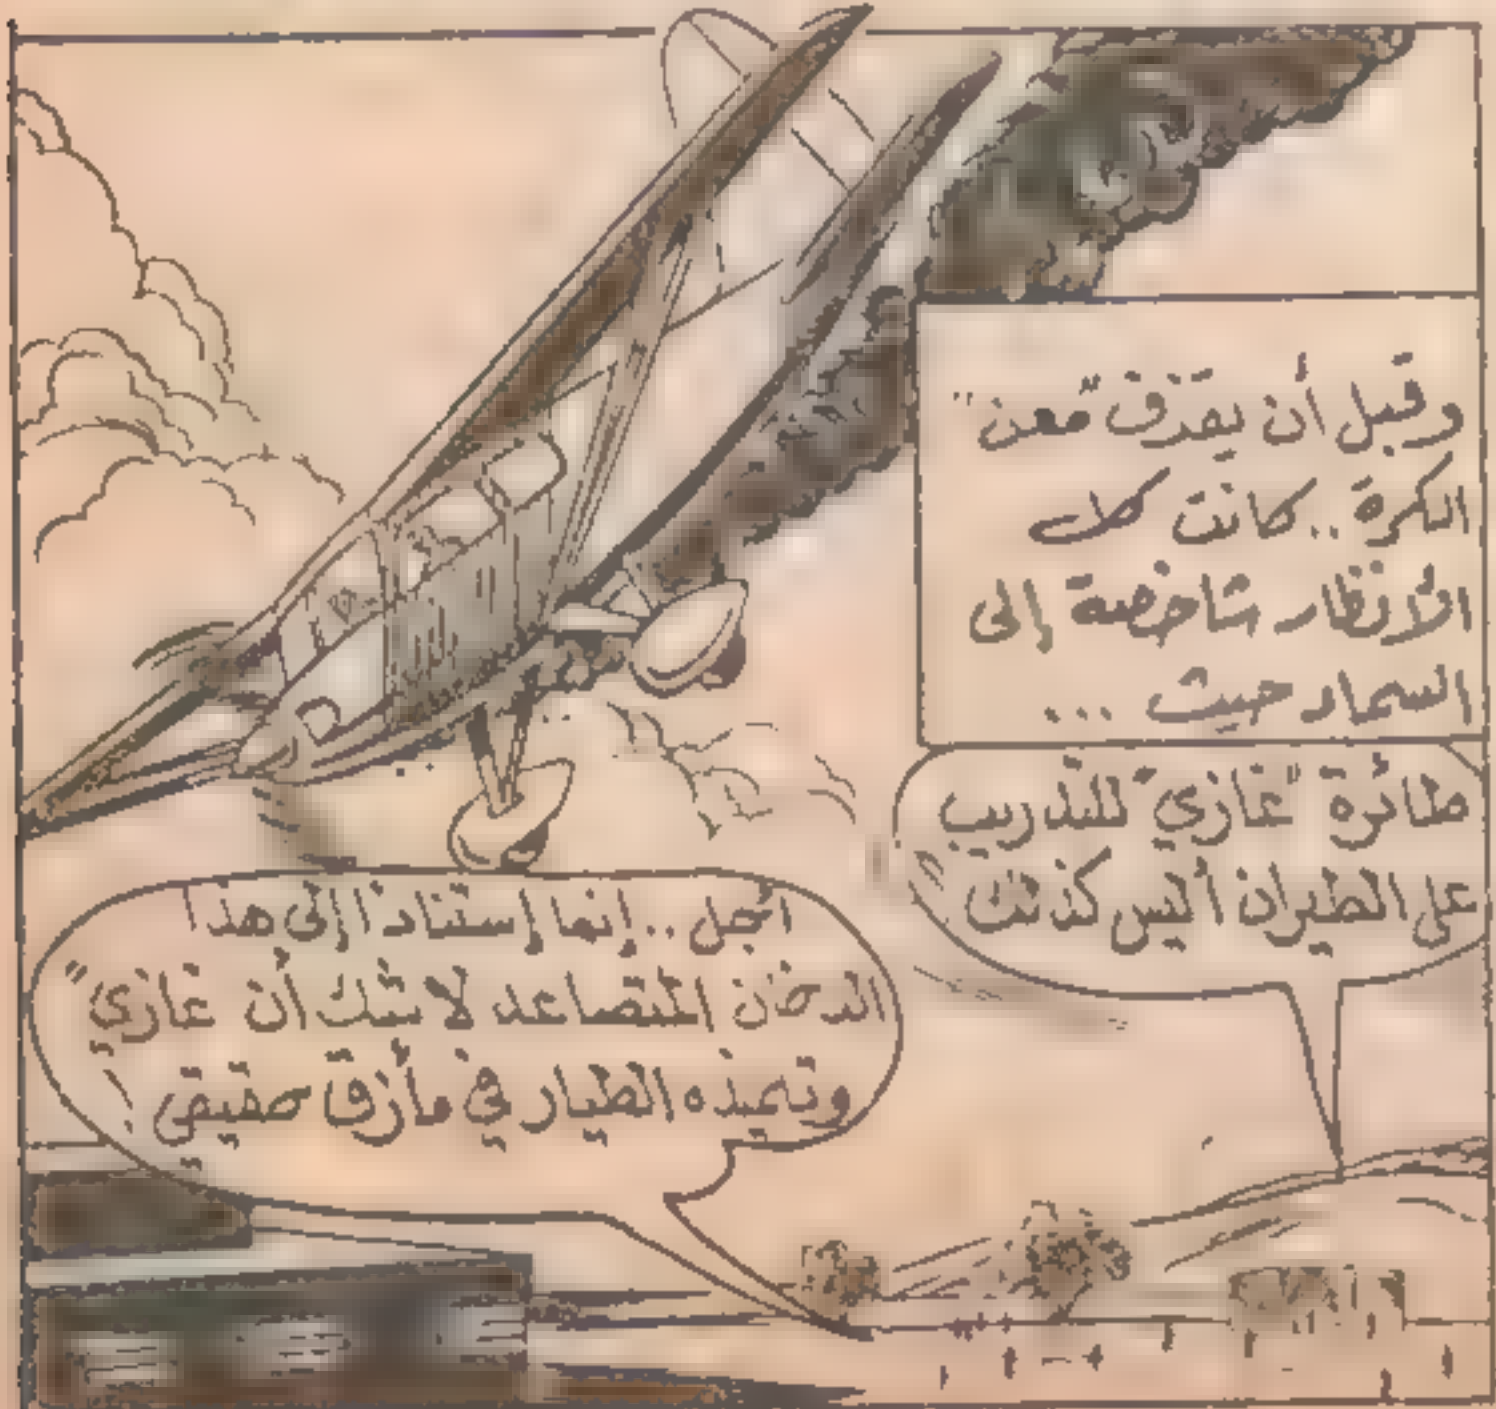 وقبل أن يقذف "معن"
الكرة .. كانت كل
الأنظار شاخصة إلى
السماء حيث ...
طائرة "غازي" للتدريب
على الطيران أليس كذلك
أجل .. إنما إستنادًا إلى هذا
الدخان المتصاعد لا شك أن غازي"
وتلميذه الطيار في مأزق حقيقي !